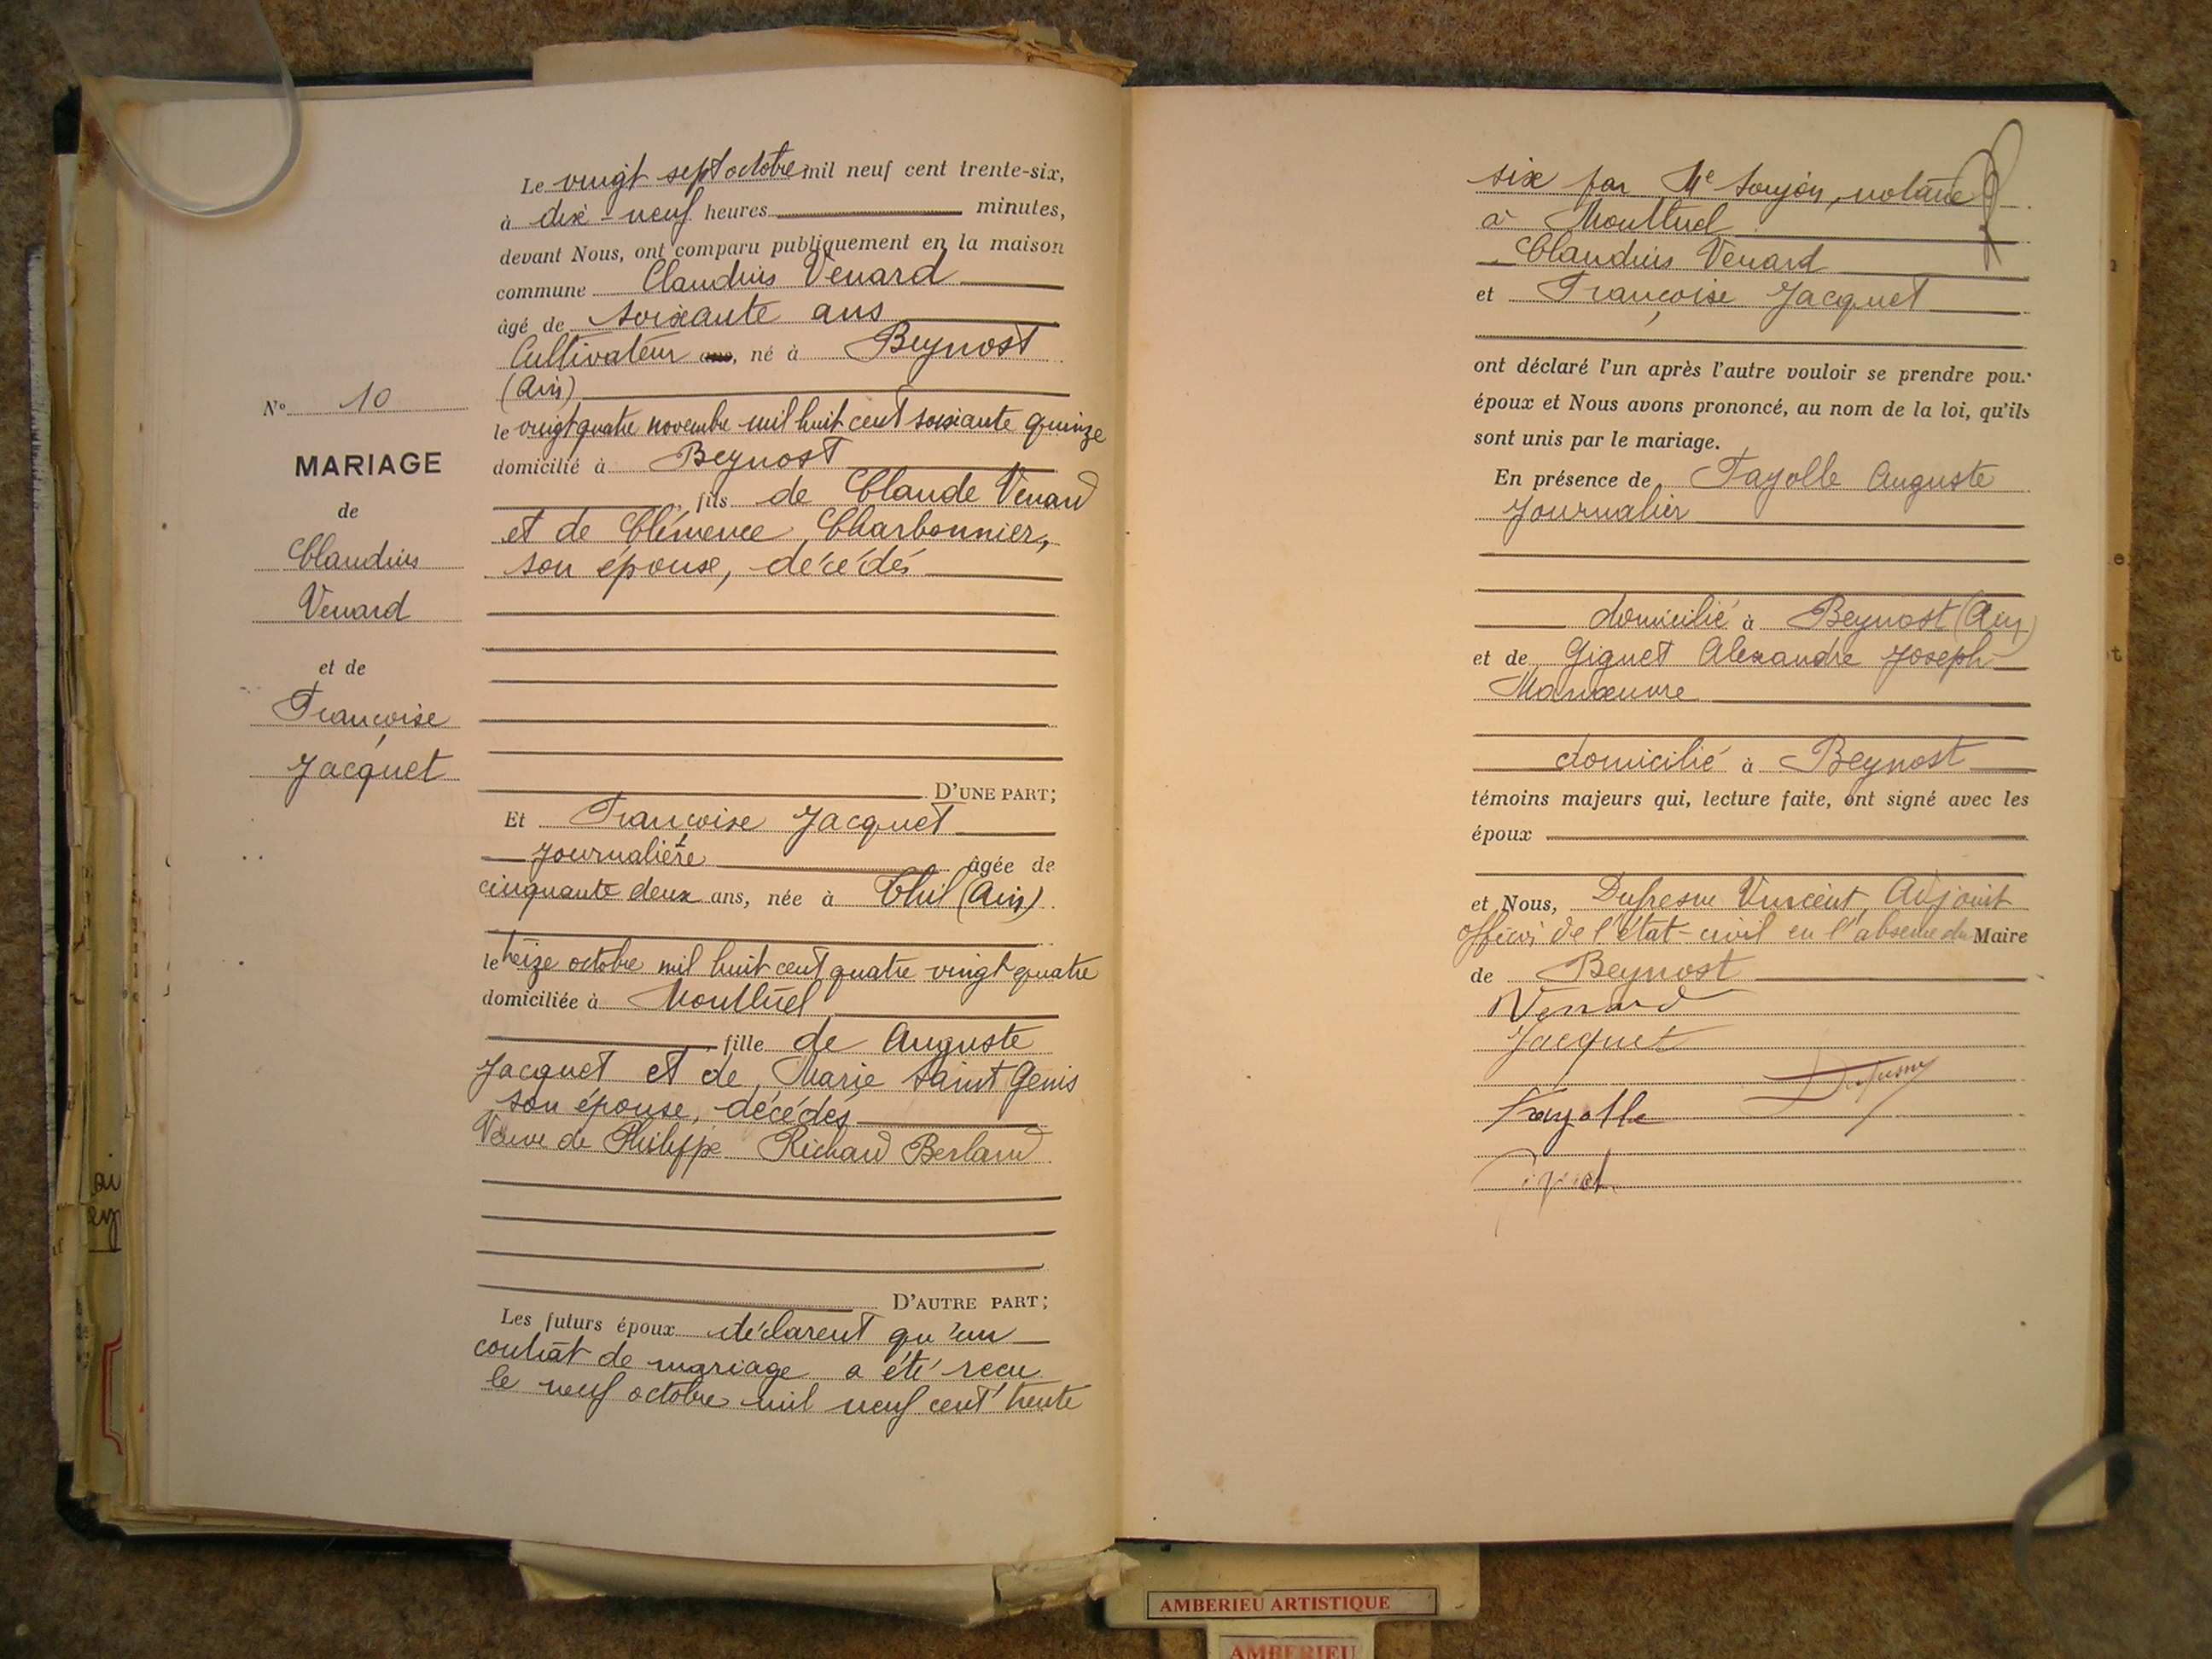 N° 10
MARIAGE
de
Claudius
Venard
et de
Françoise
Jacquet
Le vingt sept octobre mil neuf cent trente-six,
à dix-neuf heures minutes,
devant Nous, ont comparu publiquement en la maison
commune Claudius Venard
âgé de soixante ans
Cultivateur ans, né à Beynost
(Ain)
le vingt quatre novembre mil huit cent soixante quinze
domicilié à Beynost
, fils de Claude Venard
et de Clémence Charbonnier,
son épouse, décédés
D'UNE PART;
Et Françoise Jacquet
Journalière âgée de
cinquante deux ans, née à Thil (Ain)
le treize octobre mil huit cent quatre vingt quatre
domiciliée à Montluel
fille de Auguste
Jacquet et de Marie Saint Genis
son épouse, décédés
Veuve de Philippe Richard Berland
D'AUTRE PART;
Les futurs époux déclarent qu'un
contrat de mariage a été reçu
le neuf octobre mil neuf cent trente
six par Me Soujon, notaire
à Montluel
Claudius Venard
et Françoise Jacquet
ont déclaré l'un après l'autre vouloir se prendre pour
époux et Nous avons prononcé, au nom de la loi, qu'ils
sont unis par le mariage.
En présence de Fayolle Auguste
Journalier
domicilié à Beynost (Ain)
et de Giguet Alexandre Joseph
Manœuvre
domicilié à Beynost
témoins majeurs qui, lecture faite, ont signé avec les
époux
et Nous, Dufresne Vincent, Adjoint
officier de l'état-civil en l'absence du Maire
de Beynost
Venard
Jacquet
Dufresne
Fayolle
Giguet
AMBERIEU ARTISTIQUE
AMBERIEU